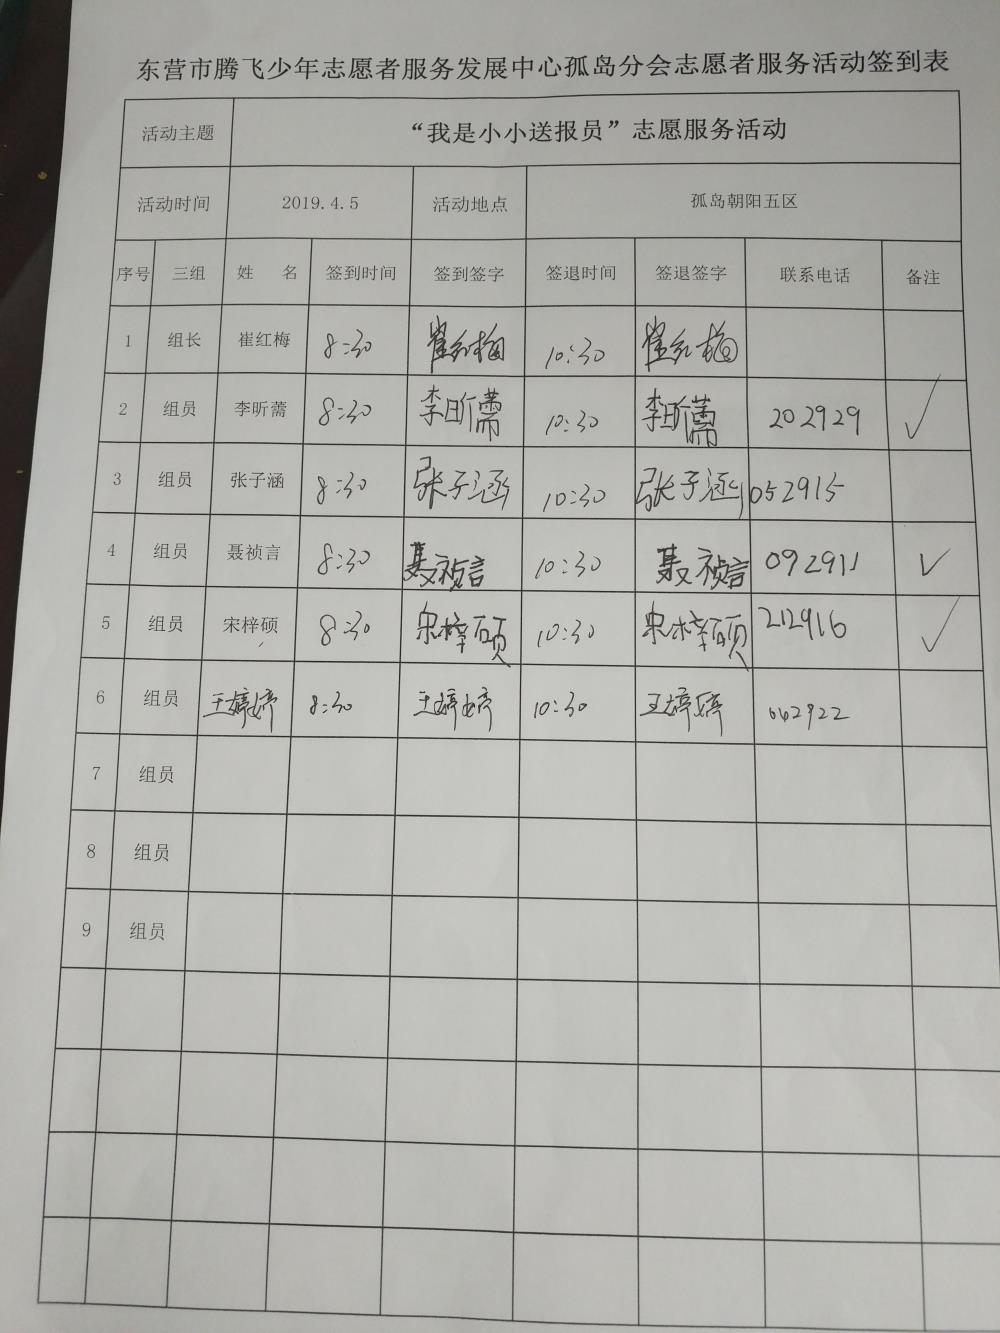 东营市腾飞少年志愿者服务发展中心孤岛分会志愿者服务活动签到表
活动主题 “我是小小送报员”志愿服务活动
活动时间 2019.4.5 活动地点 孤岛朝阳五区
序号 三组 姓 名 签到时间 签到签字 签退时间 签退签字 联系电话 备注
1 组长 崔红梅 8:30 崔红梅 10:30 崔红梅
2 组员 李昕薷 8:30 李昕薷 10:30 李昕薷 202929 ✓
3 组员 张子涵 8:30 张子涵 10:30 张子涵 052915
4 组员 聂祯言 8:30 聂祯言 10:30 聂祯言 092911 ✓
5 组员 宋梓硕 8:30 宋梓硕 10:30 宋梓硕 212916 ✓
6 组员 王婷婷 8:30 王婷婷 10:30 王婷婷 062922
7 组员
8 组员
9 组员